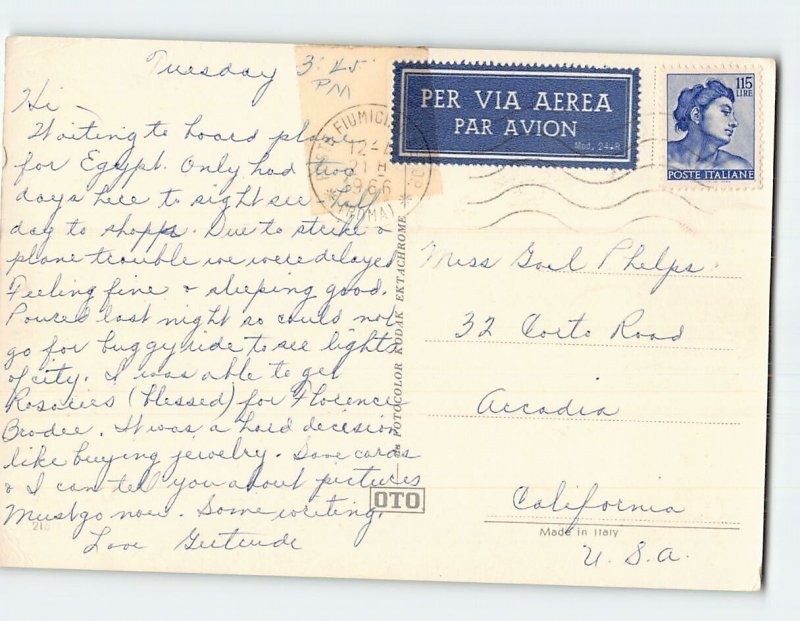 Tuesday 3:45
PM
Hi -
Waiting to board plane
for Egypt. Only had two
days here to sight see & half
day to shopp. Due to strike &
plane trouble we were delayed
Feeling fine & sleeping good.
Poured last night so could not
go for buggy ride to see lights
of city. I was able to get
Rosaries (blessed) for Florence
Brodee. It was a hard decision
like buying jewelry. Save cards
& I can tell you about pictures
Must go now. Some writing.
Love Gertrude
210
PER VIA AEREA
PAR AVION
Mod. 24-R
115
LIRE
POSTE ITALIANE
FIUMICI
12-
21
1966
(ROMA)
FOTOCOLOR KODAK EKTACHROME
OTO
Miss Gail Phelps
32 Corto Road
Arcadia
California
Made in Italy
U.S.A.